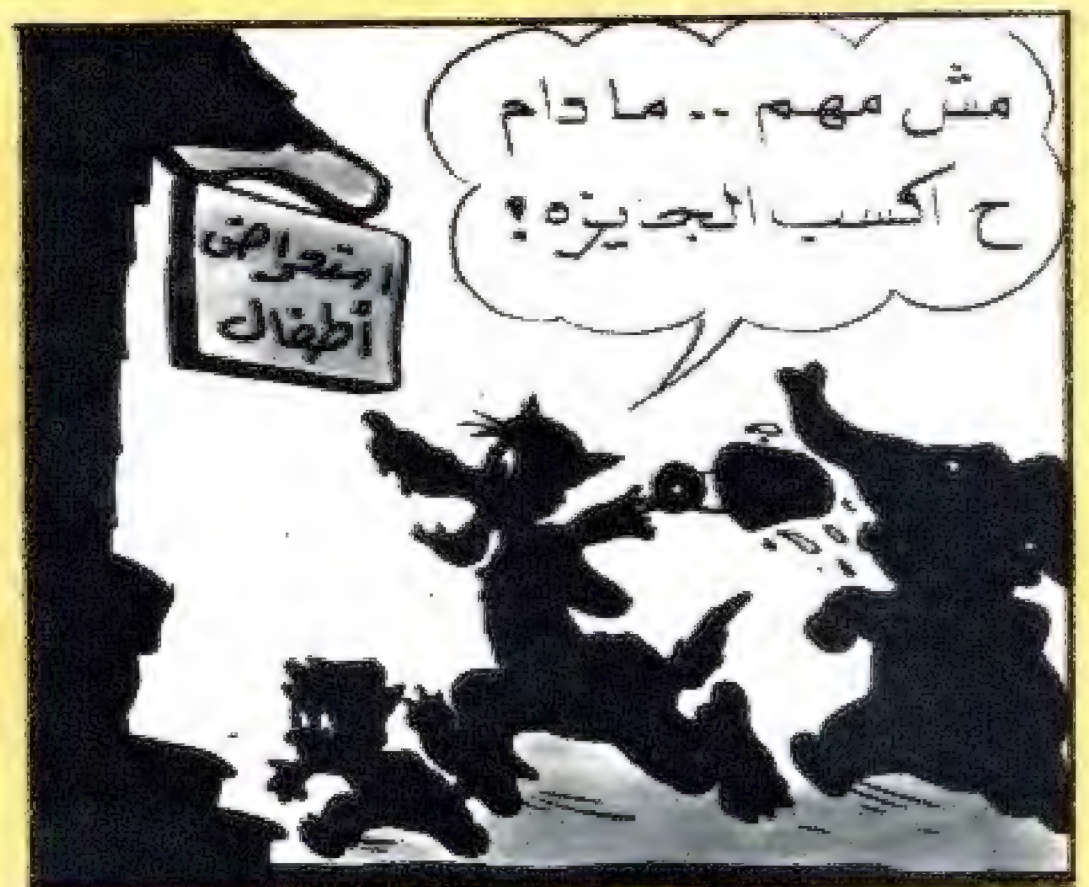 مش مهم .. ما دام
ح اكسب الجديزه ؟
استعراض
أطفال